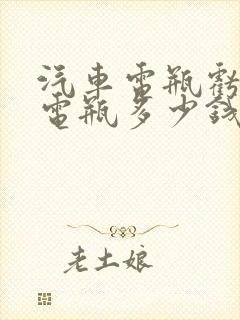 汽车電瓶虧
電瓶多少錢
老土娘